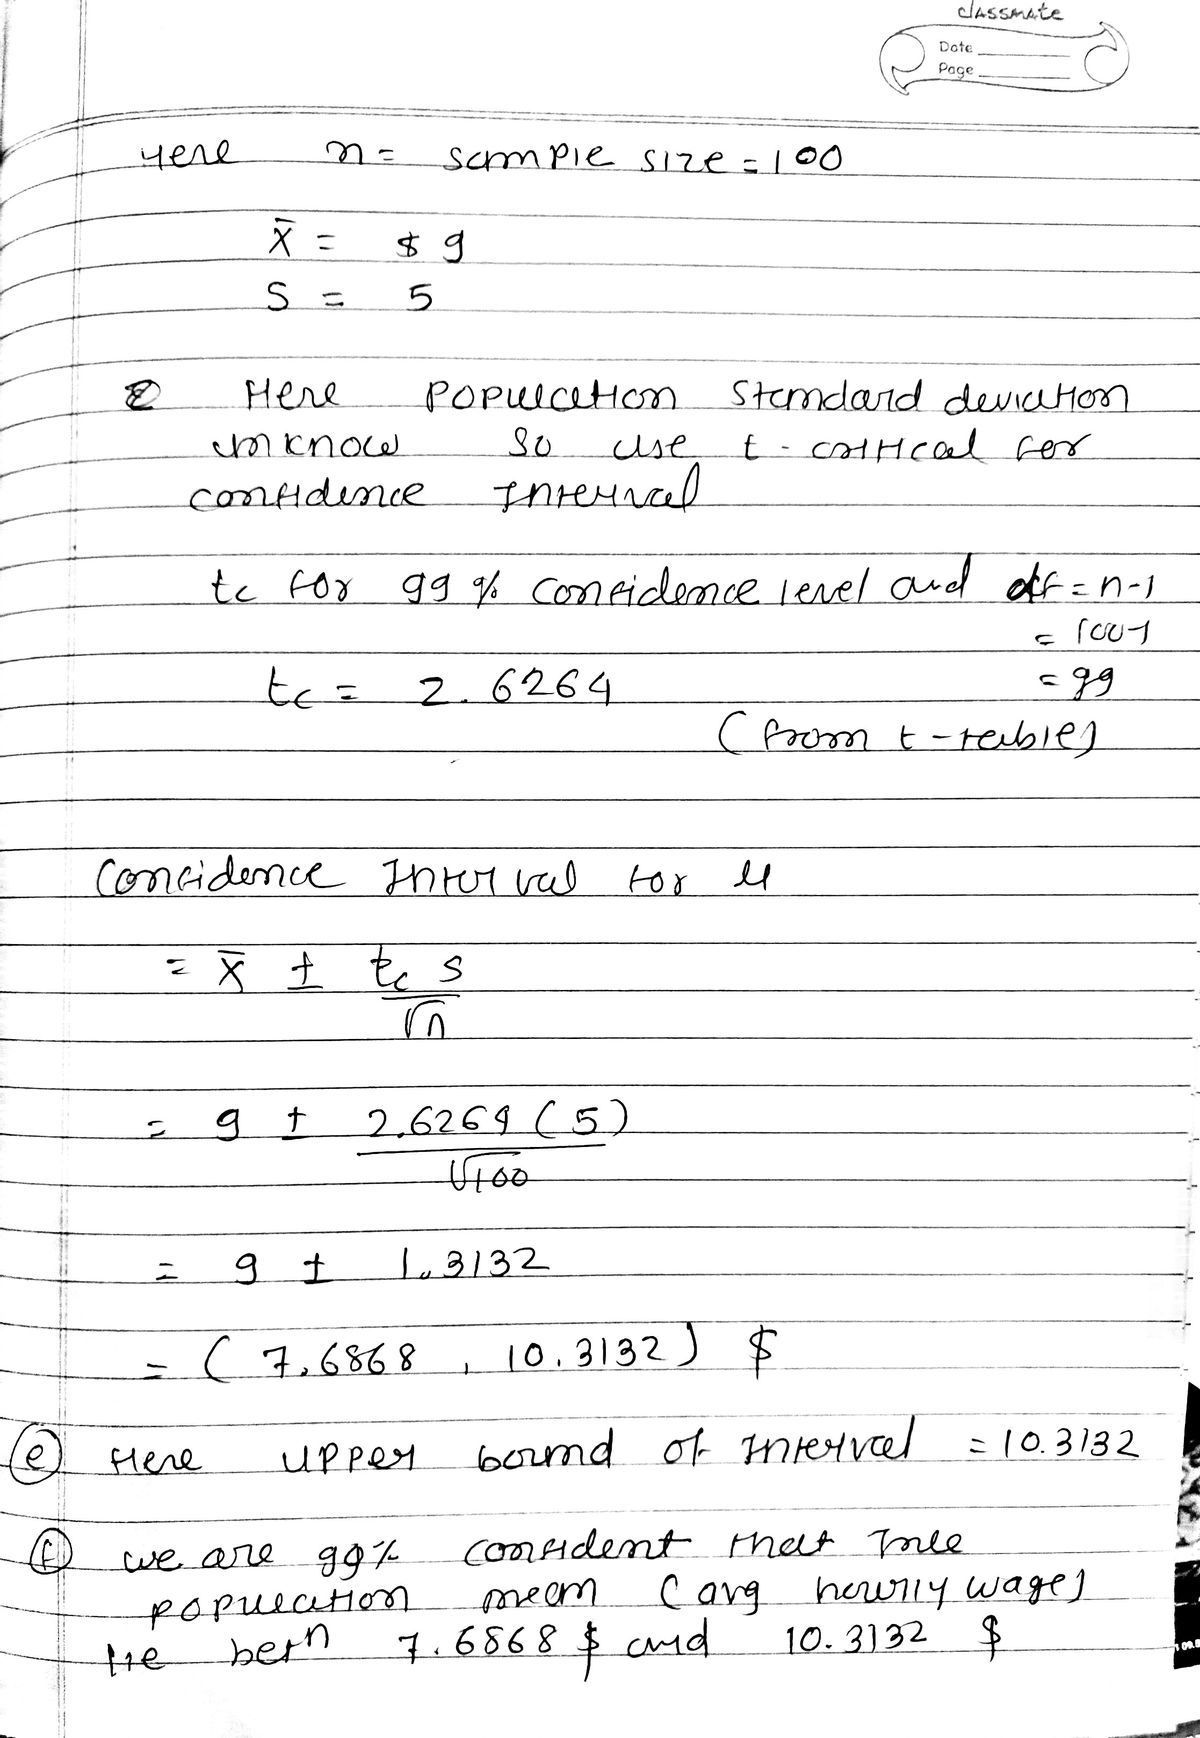 classmate
Date
Page
Here n = sample size = 100
x̄ = $ 9
S = 5
Here population standard deviation
unknow so use t - critical for
confidence Interval
tc for 99 % confidence level and df = n-1
= 100-1
tc = 2.6264 = 99
(from t - table)
Confidence Interval for μ
= x̄ ± tc s / √n
= 9 ± 2.6264 (5) / √100
= 9 ± 1.3132
= (7.6868, 10.3132) $
(e) Here upper bound of interval = 10.3132
(f) we are 99% confident that True
population mean (avg hourly wage)
lie betn 7.6868 $ and 10.3132 $